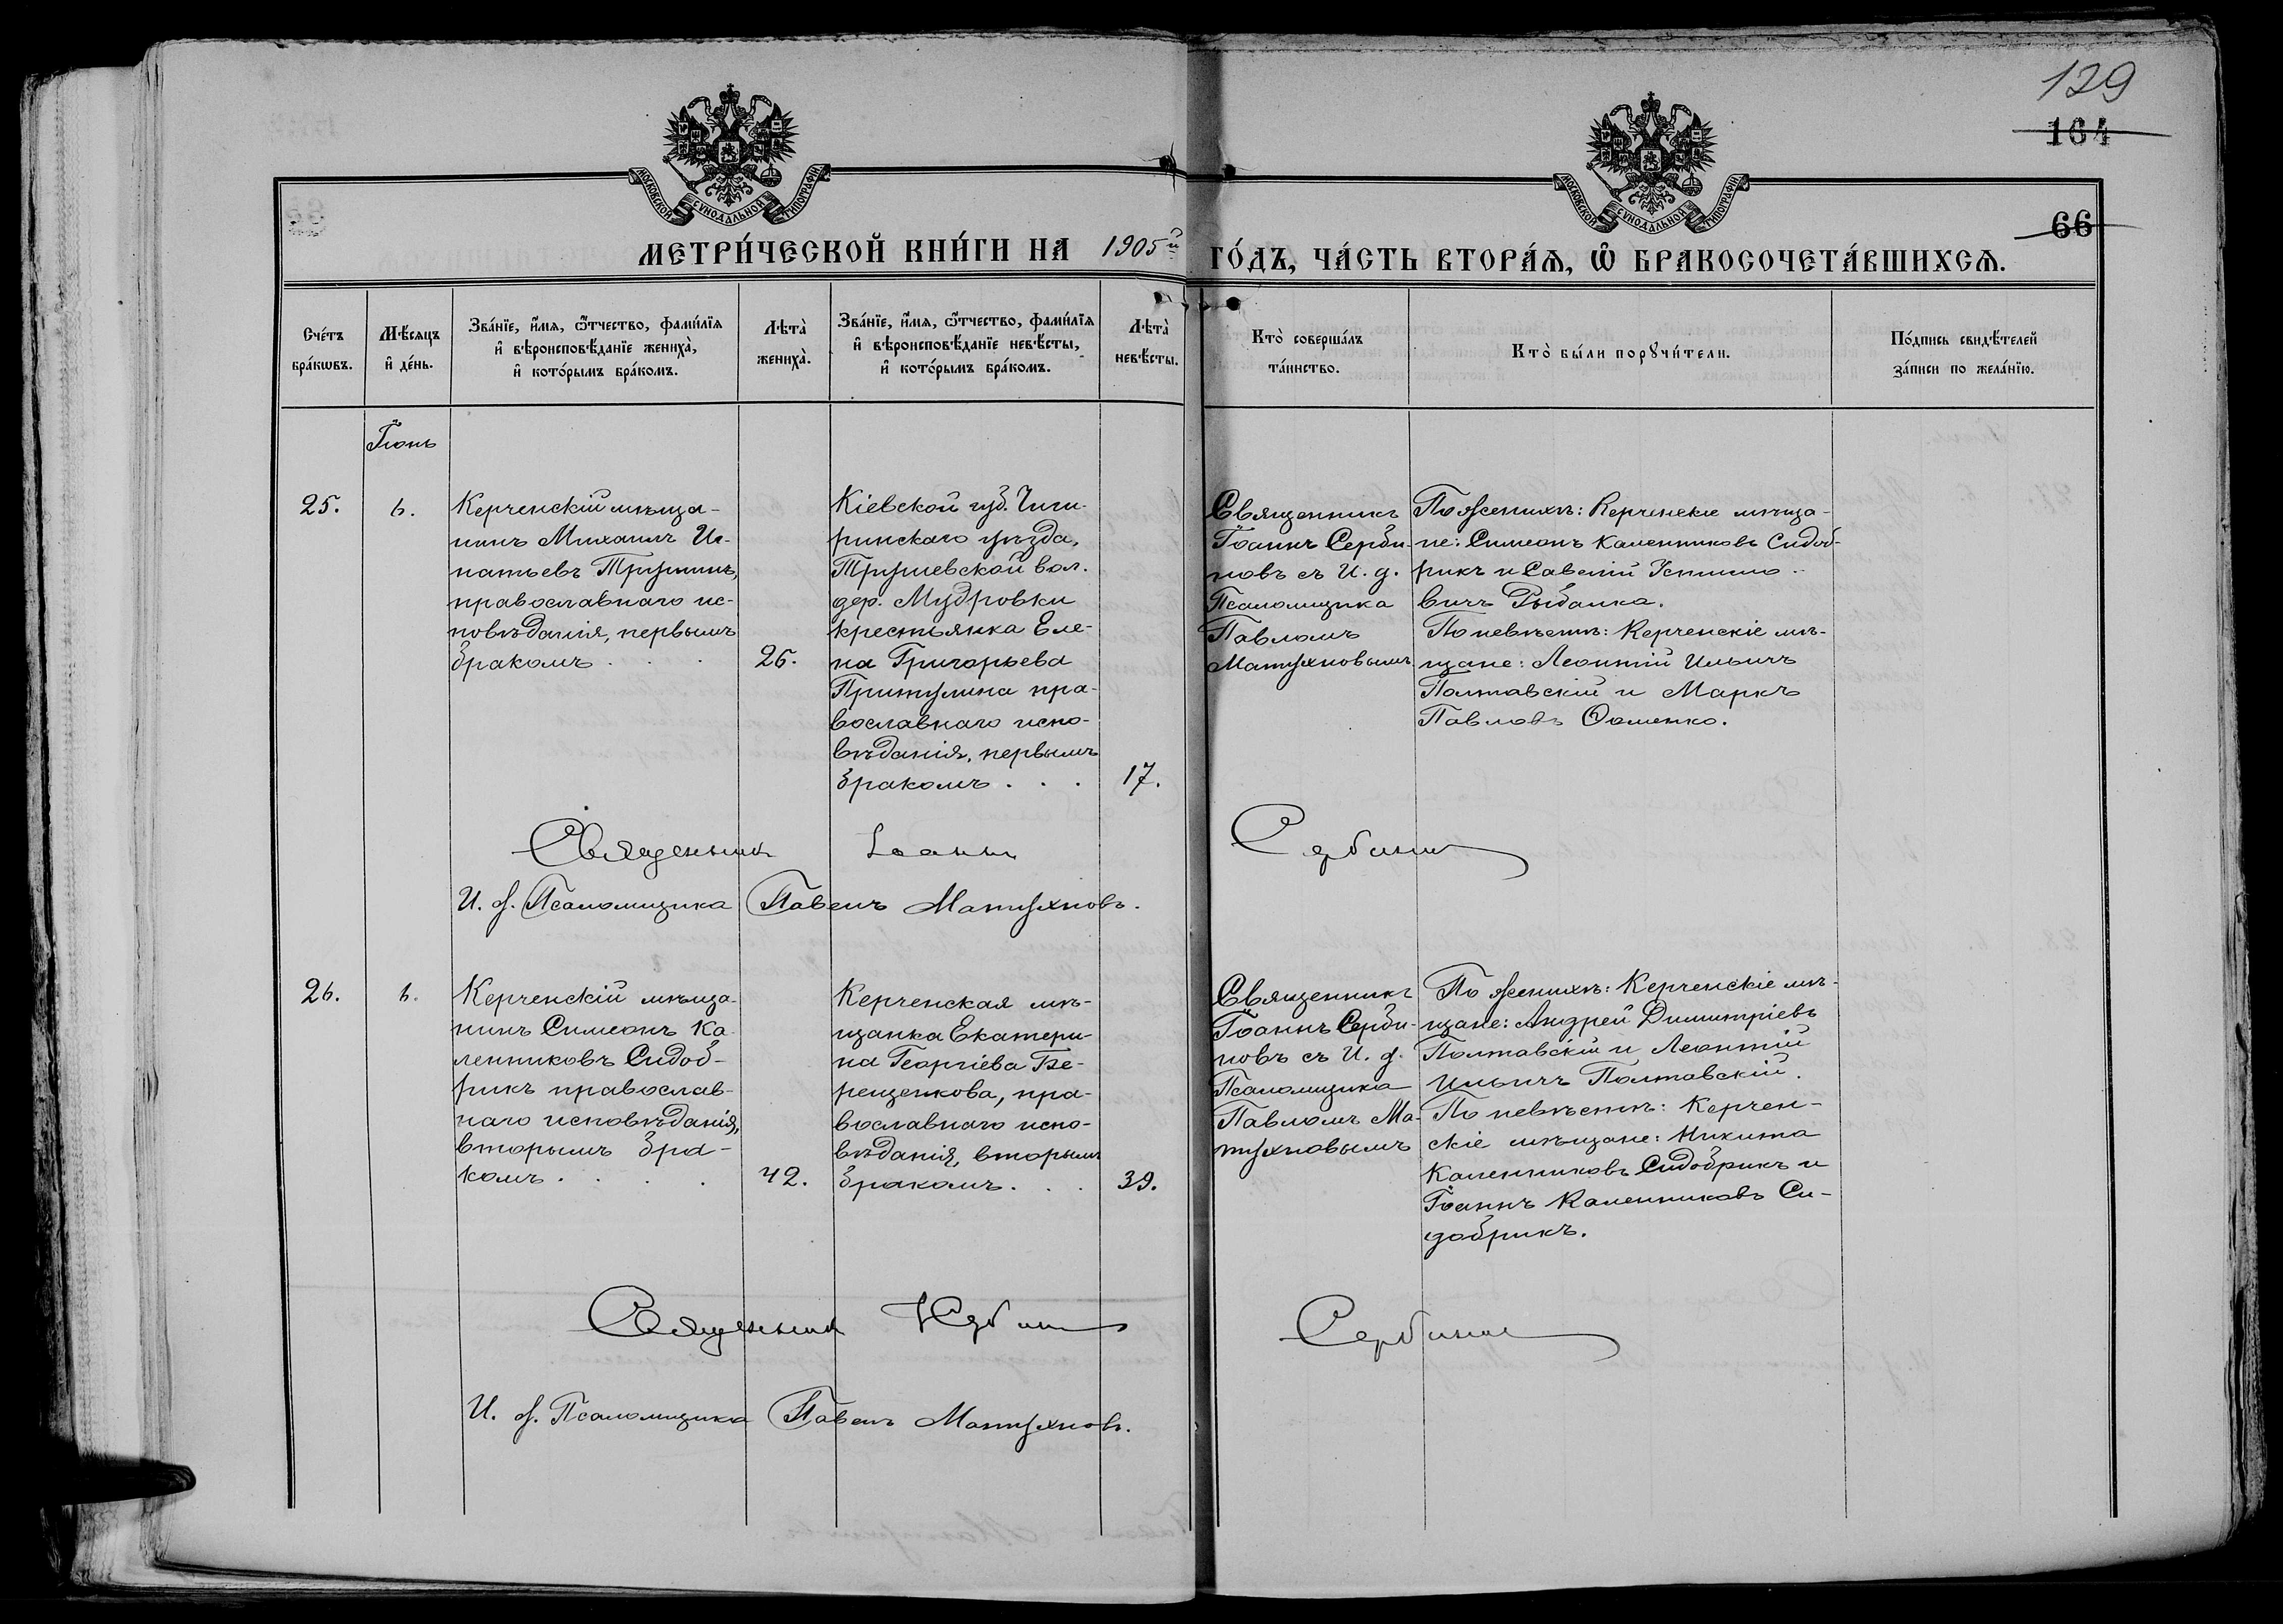 129
164
66
МОСКОВСКОЙ СУНОДАЛЬНОЙ ТИПОГРАФІИ
МОСКОВСКОЙ СУНОДАЛЬНОЙ ТИПОГРАФІИ
МЕТРИ́ЧЕСКОЙ КНИ́ГИ НА 1905й ГО́ДЪ, ЧА́СТЬ ВТОРА́Ѧ, Ѽ БРАКОСОЧЕТА́ВШИХСѦ.
Сче́тъ
бра́кѡвъ.
Мѣ́сѧцъ
и҆ де́нь.
Зва́нїе, и҆́мѧ, ѻ҆́тчество, фами́лїѧ
и҆ вѣроисповѣ́данїе жениха̀,
и҆ кото́рымъ бра́комъ.
Лѣта̀
жениха̀.
Зва́нїе, и҆́мѧ, ѻ҆́тчество, фами́лїѧ
и҆ вѣроисповѣ́данїе невѣ́сты,
и҆ кото́рымъ бра́комъ.
Лѣта̀
невѣ́сты.
Кто̀ соверша́лъ
та́инство.
Кто̀ бы́ли порꙋчи́тели.
По́дпись свидѣ́телей
за́писи по жела́нїю.
Іюнь
25.
6.
Керченскій мѣща-
нинъ Михаилъ Иг-
натьевъ Трушинъ,
православнаго ис-
повѣданія, первымъ
бракомъ . . .
26.
Кіевской губ. Чиги-
ринскаго уѣзда,
Трушевской вол.
дер. Мудровки
крестьянка Еле-
на Григорьева
Притулина пра-
вославнаго испо-
вѣданія, первымъ
бракомъ . . .
17.
Священникъ
Іоаннъ Серби-
новъ съ И. д.
Псаломщика
Павломъ
Матухновымъ
По женихѣ: Керченскіе мѣща-
не: Симеонъ Каленниковъ Сидоб-
рикъ и Савелій Устино-
вичъ Рыбалка.
По невѣстѣ: Керченскіе мѣ-
щане: Леонтій Ильичъ
Полтавскій и Маркъ
Павловъ Фоменко.
Священникъ Іоаннъ Сербинов
И. д. Псаломщика Павелъ Матухновъ.
26.
6.
Керченскій мѣща-
нинъ Симеонъ Ка-
ленниковъ Сидоб-
рикъ православ-
наго исповѣданія,
вторымъ бра-
комъ . . . .
42.
Керченская мѣ-
щанка Екатери-
на Георгіева Бе-
рещенкова, пра-
вославнаго испо-
вѣданія, вторымъ
бракомъ . . .
39.
Священникъ
Іоаннъ Серби-
новъ съ И. д.
Псаломщика
Павломъ Ма-
тухновымъ
По женихѣ: Керченскіе мѣ-
щане: Андрей Димитріевъ
Полтавскій и Леонтій
Ильичъ Полтавскій.
По невѣстѣ: Керчен-
скіе мѣщане: Никита
Каленниковъ Сидобрикъ и
Іоаннъ Каленниковъ Си-
добрикъ.
Священник Сербинов
И. д. Псаломщика Павелъ Матухновъ.